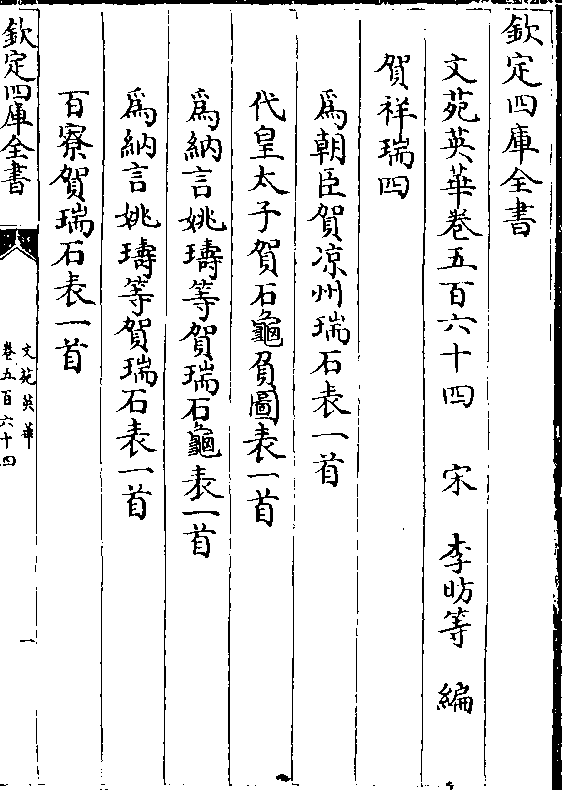 欽定四庫全書
文苑英華卷五百六十四　宋　李昉等　編
賀祥瑞四
爲朝臣賀涼州瑞石表一首
代皇太子賀石龜負圖表一首
爲納言姚璹等賀瑞石龜表一首
爲納言姚璹等賀瑞石表一首
百寮賀瑞石表一首
欽定四庫全書
文苑英華
卷五百六十四
一